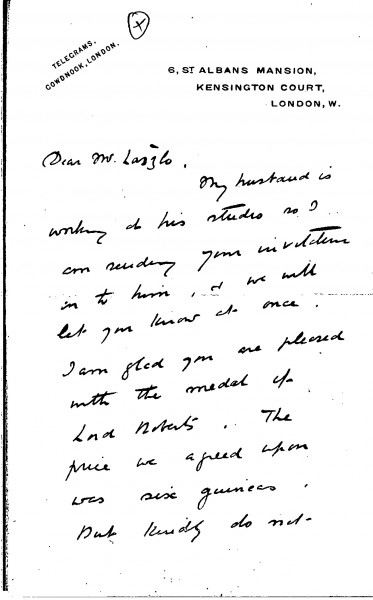 TELEGRAMS,
COWDNOOK, LONDON.
6, ST ALBANS MANSION,
KENSINGTON COURT,
LONDON, W.
Dear Mr. László,
My husband is
working at his studio so I
am sending your invitation
on to him, & we will
let you know at once.
I am glad you are pleased
with the medal of
Lord Roberts. The
price we agreed upon
was six guineas.
But kindly do not